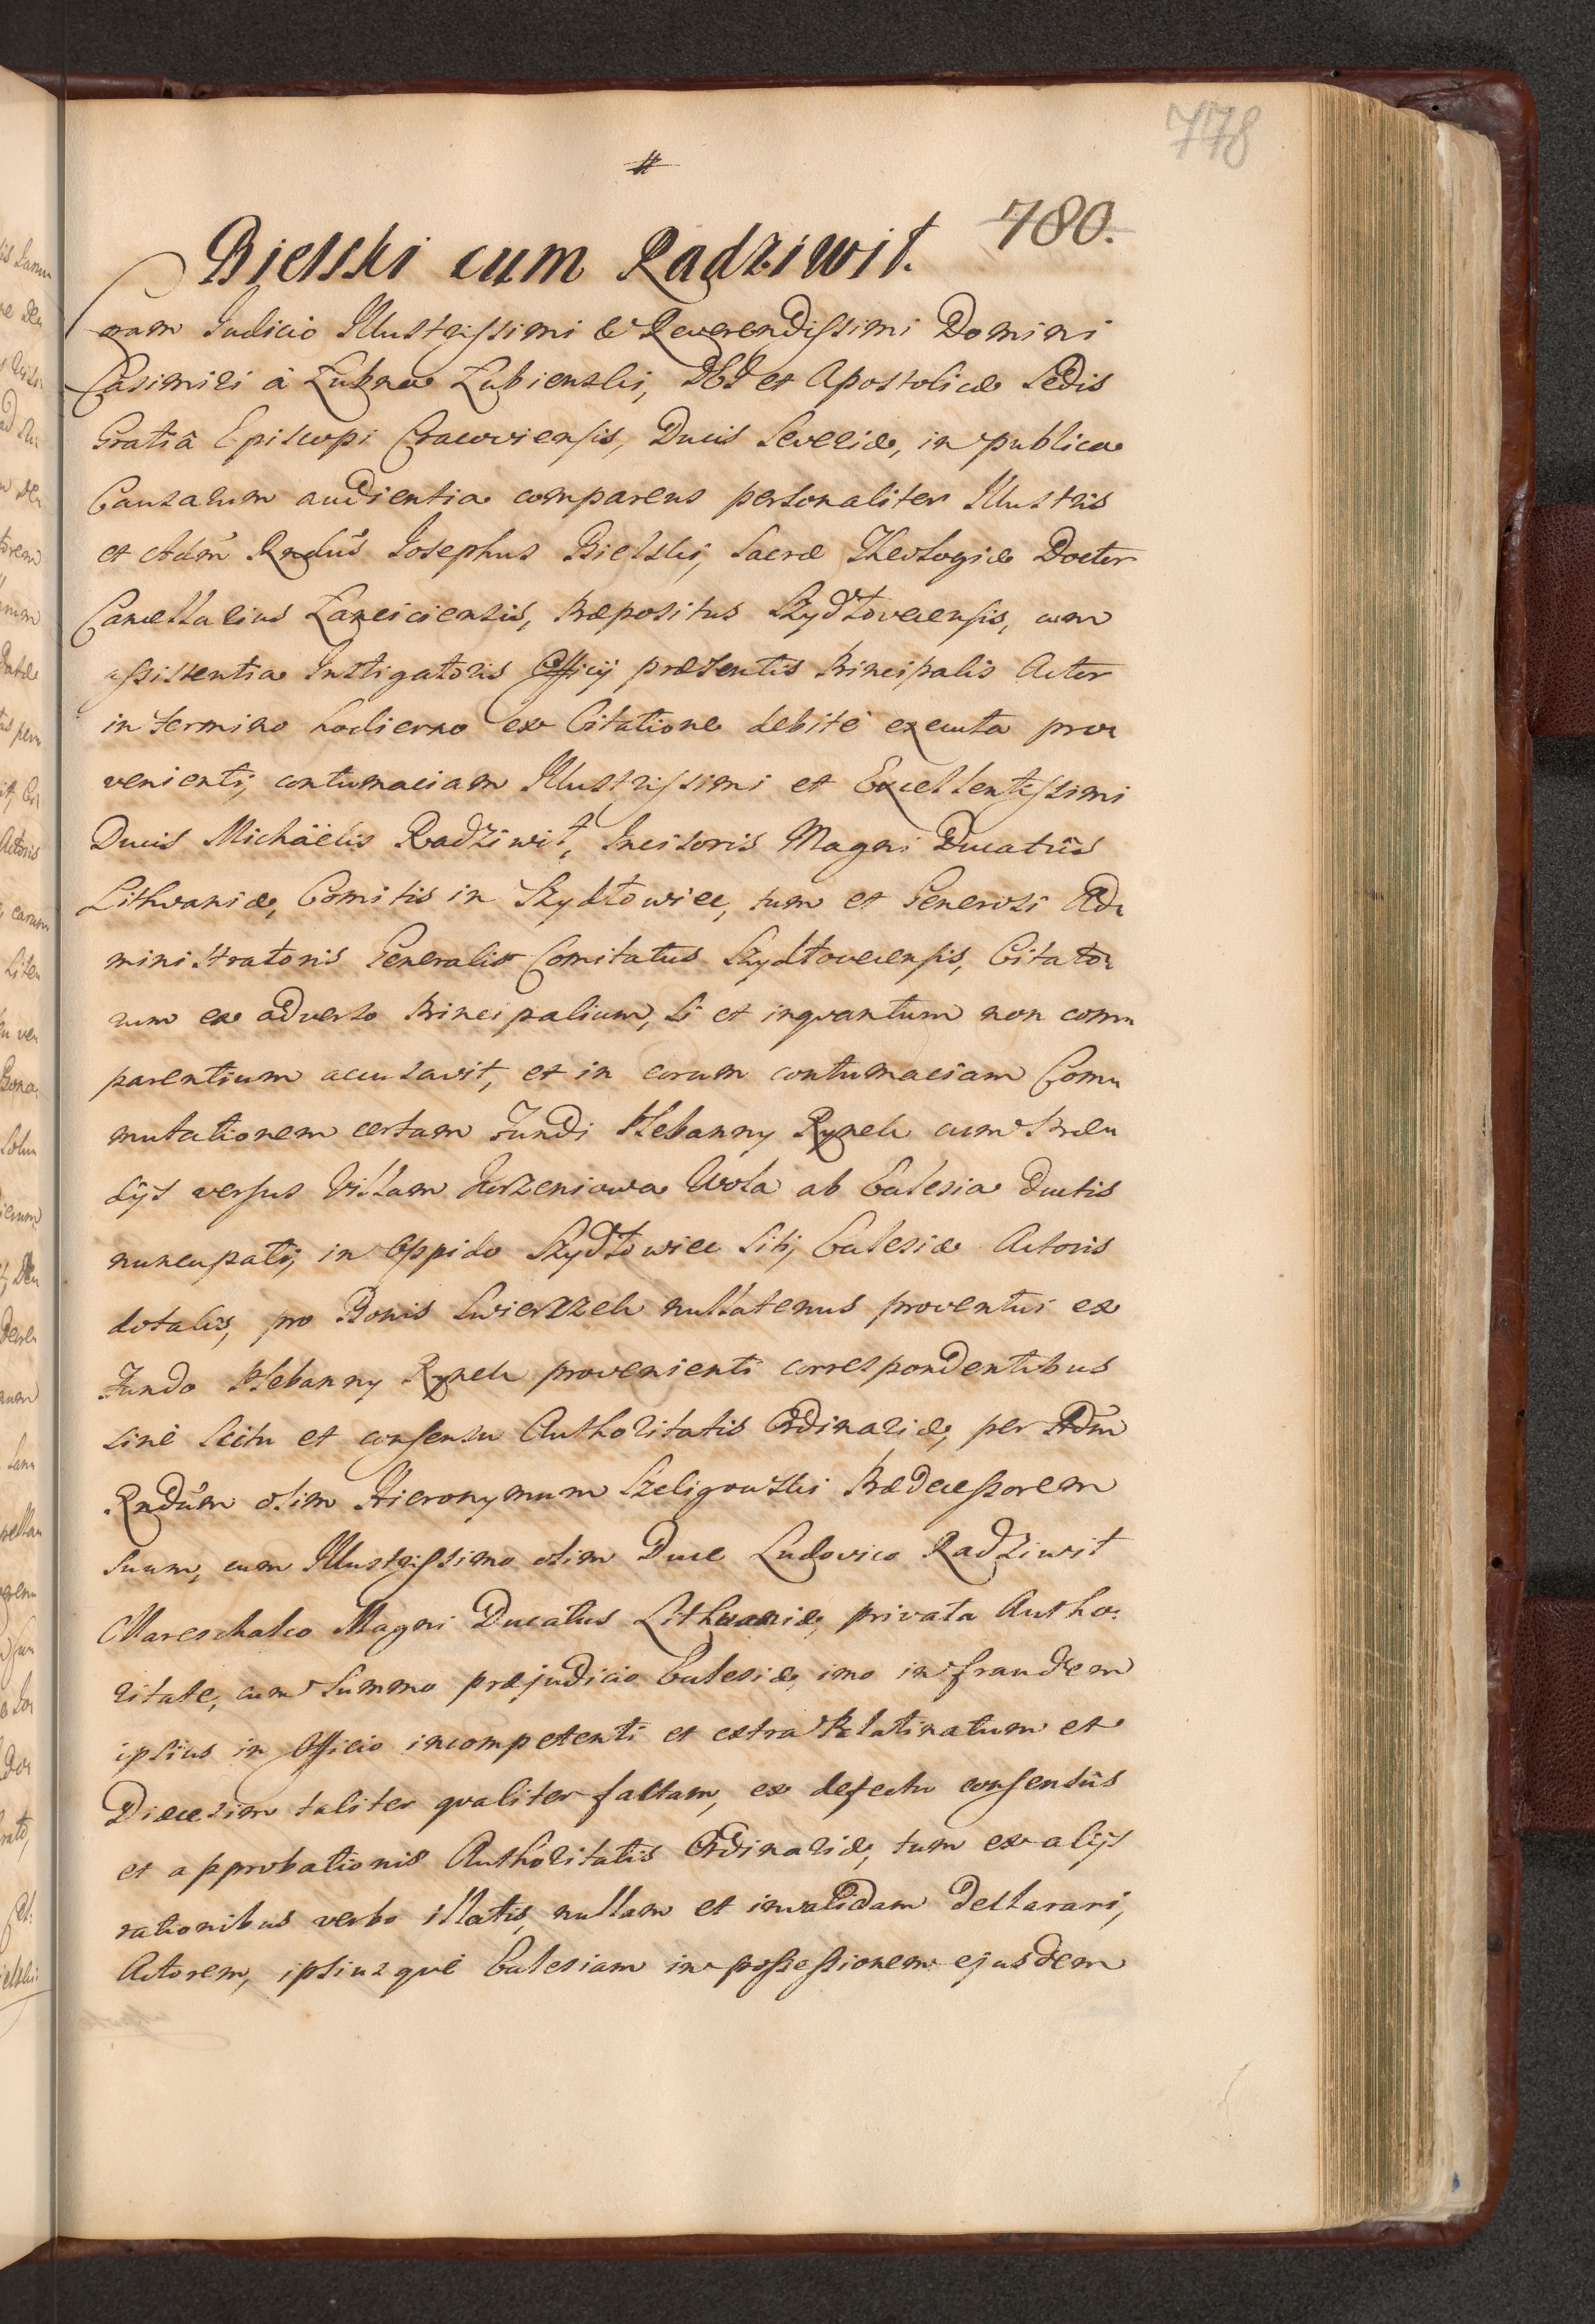 778
#
780.
Bielski cum Radziwił.
Coram Judicio Illustrissimi & Reverendissimi Domini
Casimiri à Łubna Łubienski, DEI et Apostolicæ Sedis
Gratiâ Episcopi Cracoviensis, Ducis Severiæ, in publica
Causarum audientia comparens personaliter Illustris
et Adm̃ Rndūs Josephus Bielski, Sacræ Theologiæ Doctor
Cancellarius Lanciciensis, Præpositus Szydłoveciensis, cum
assistentia Instigatoris Officij præsentis Principalis Actor
in termino hodierno ex Citatione debitè executa pro-
venienti, contumaciam Illustrissimi et Excellentissimi
Ducis Michäelis Radziwił, Incisoris Magni Ducatûs
Lithvaniæ, Comitis in Szydłowiec, tum et Generosi Ad-
ministratoris Generalis Comitatus Szydłoveciensis, Citato-
rum ex adverso Principalium, si et inqvantum non com-
parentium accusavit, et in eorum contumaciam Com-
mutationem certam Fundi Plebanny Rynek cum Præ-
dijs versus Villam Korzeniowa Wola ab Ecclesia ductis
nuncupati, in Oppido Szydłowiec siti, Ecclesiæ Actoris
dotalis, pro Bonis Swierzzek nullatenus proventui ex
Fundo Plebanny Rynek provenienti correspondentibus
sinè scitu et consensu Authoritatis Ordinariæ, per Adm̃
Rndūm olim Hieronymum Szeligowski Prædecessorem
suum, cum Illustrissimo olim Duce Ludovico Radziwił
Mareschalco Magni Ducatus Lithuaniæ, privata Autho-
ritate, cum summo præjudicio Ecclesiæ, imo in fraudem
ipsius in Officio incompetenti et extra Palatinatum et
Diœcesim taliter qvaliter factam, ex defectu consensûs
et approbationis Authoritatis Ordinariæ, tum ex alijs
rationibus verbo illatis, nullam et invalidam declarari,
Actorem, ipsiusqve Ecclesiam in possessionem ejusdem